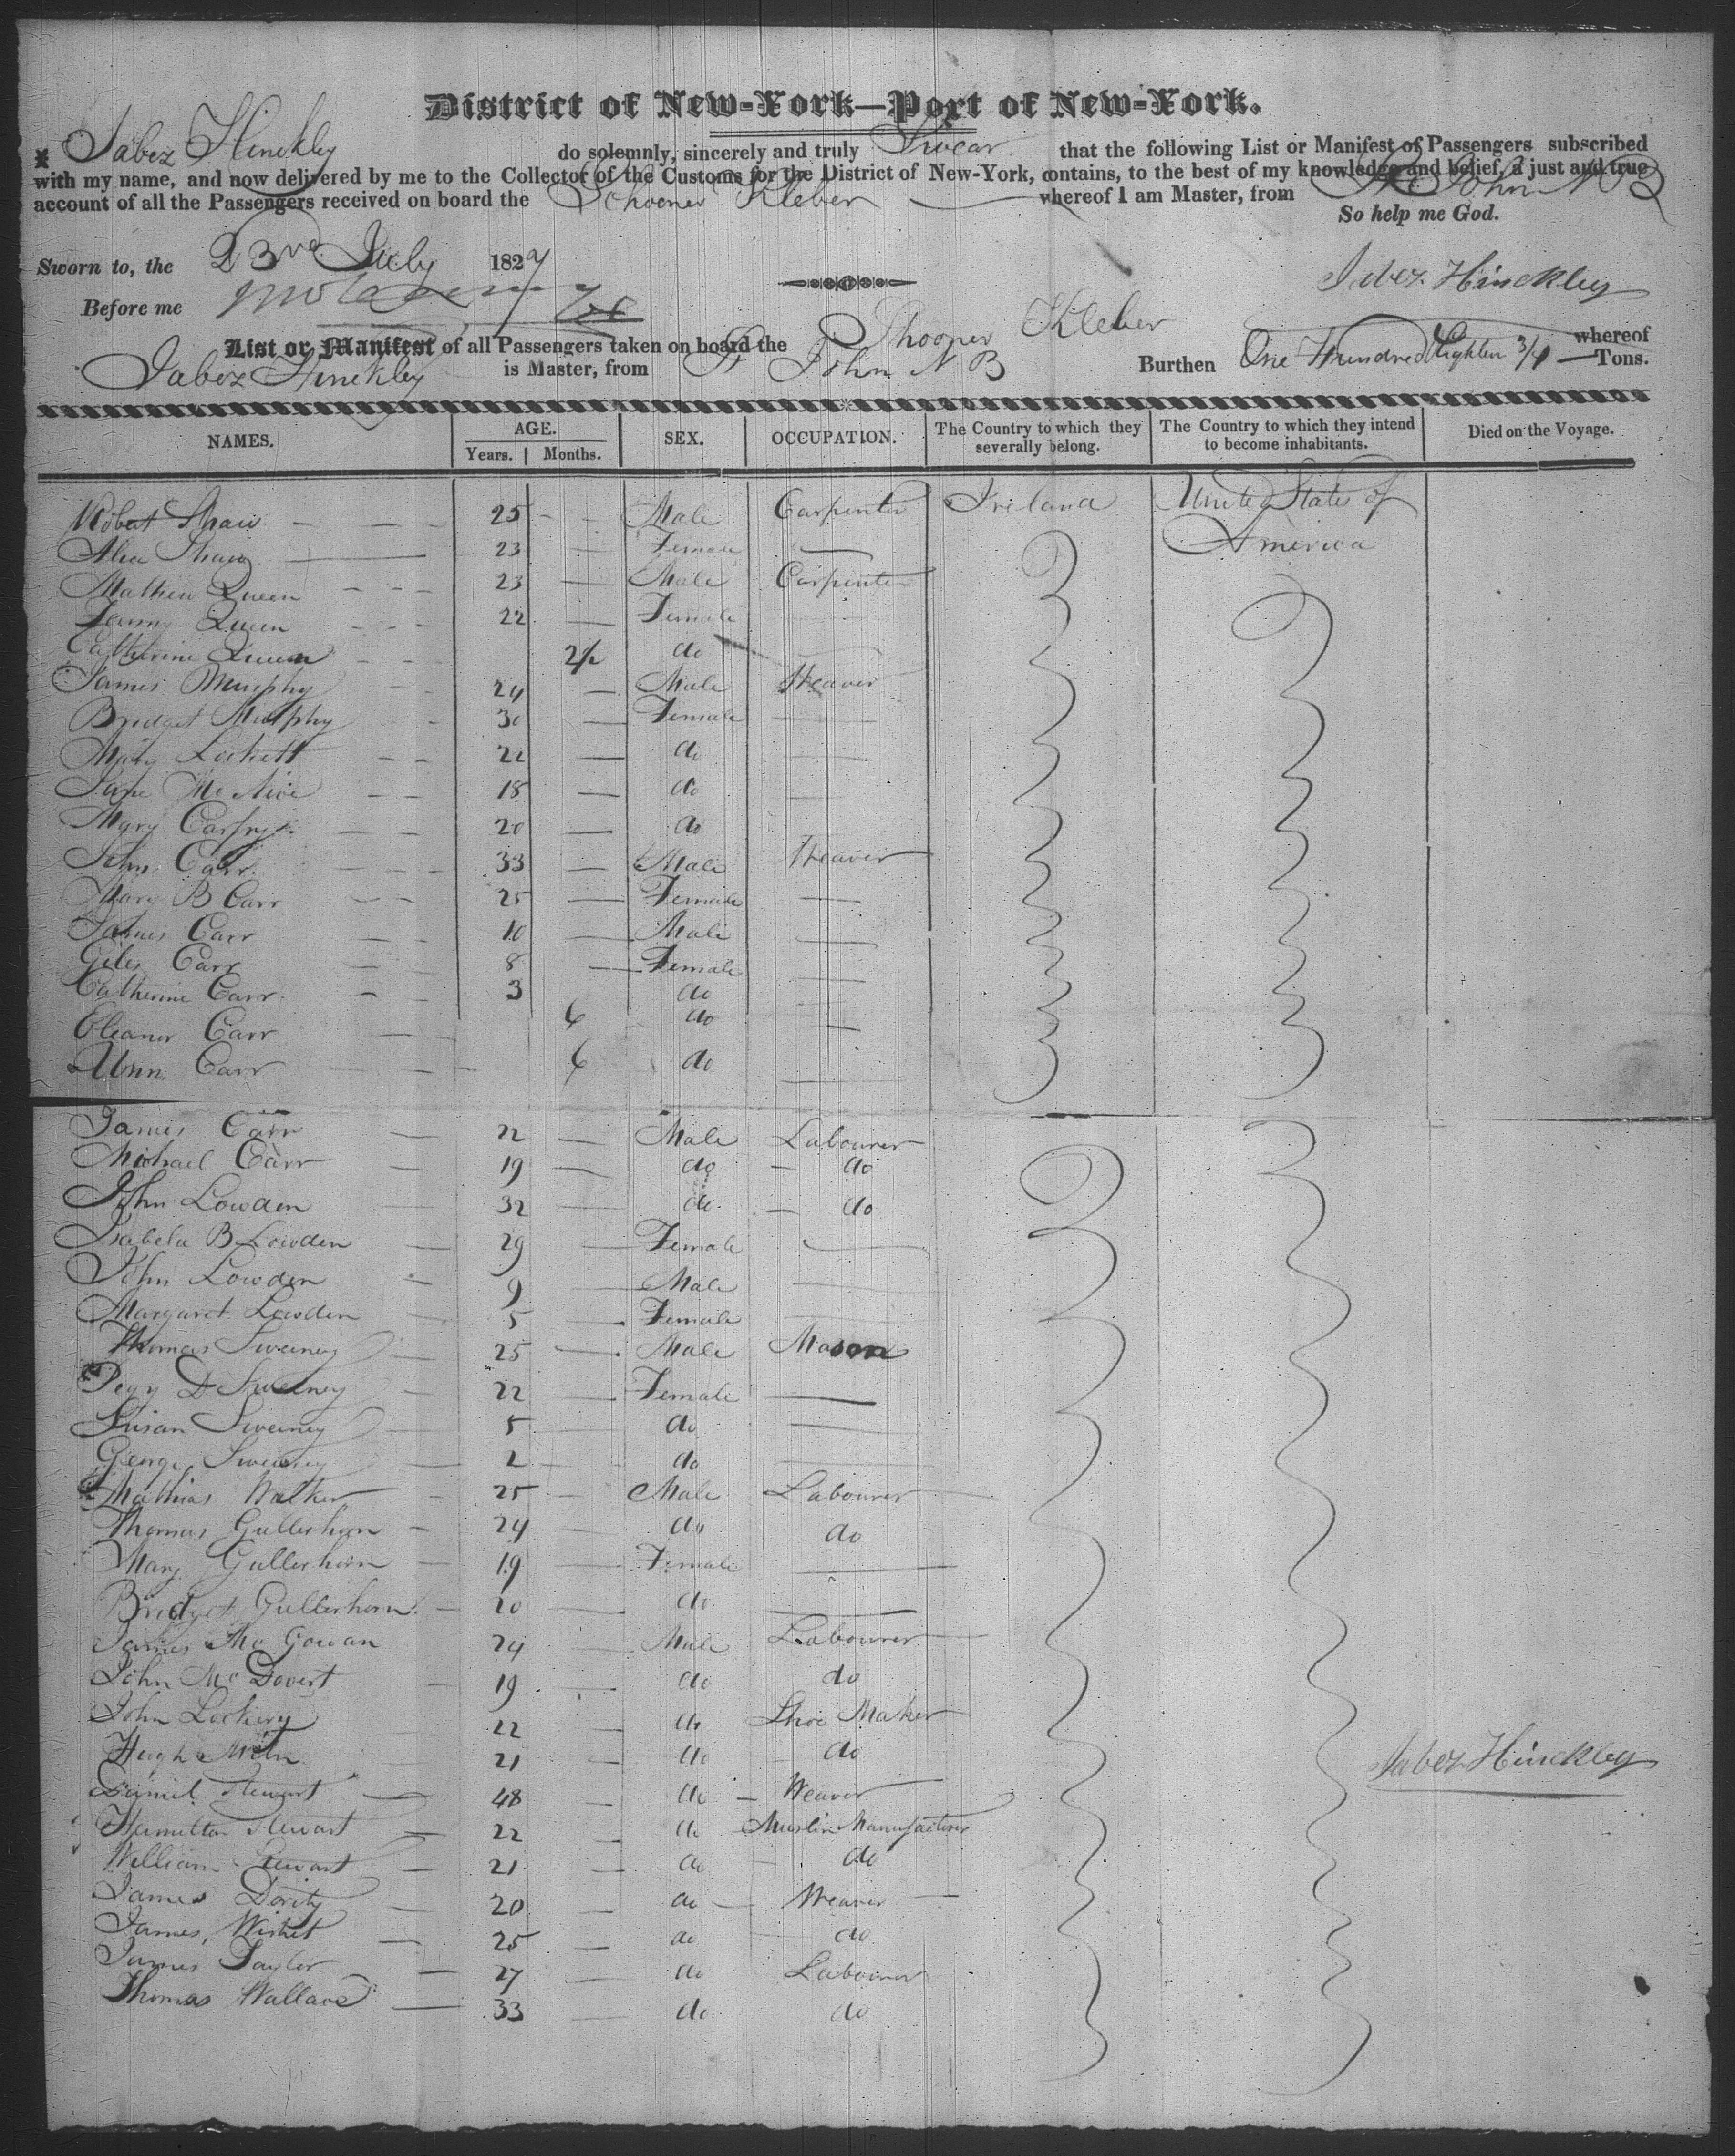 District of New-York—Port of New-York.
Jabez Hinckley do solemnly, sincerely and truly Swear that the following List or Manifest of Passengers subscribed
with my name, and now delivered by me to the Collector of the Customs for the District of New-York, contains, to the best of my knowledge and belief, a just and true
account of all the Passengers received on board the Schooner Kleber whereof I am Master, from St John N B
So help me God.
Sworn to, the 23rd July 1829
Jabez Hinckley
Before me
List or Manifest of all Passengers taken on board the Shooner Kleber whereof
Jabez Hinckley is Master, from St John N B Burthen One Hundred Eighteen 3/4 Tons.
NAMES. AGE. Years. Months. SEX. OCCUPATION. The Country to which they severally belong. The Country to which they intend to become inhabitants. Died on the Voyage.
Robert Shaw 25 Male Carpenter Ireland United States of America
Alice Shaw 23 Female
Mathew Queen 23 Male Carpenter
Fanny Queen 22 Female
Catherine Queen 2½ do
James Murphy 24 Male Weaver
Bridget Murphy 30 Female
Mary Lockett 22 do
Jane 18 do
Mary 20 do
John Carr 33 Male Weaver
Mary B Carr 25 Female
James Carr 10 Male
Giles Carr 8 Female
Catherine Carr 3 do
Eleanor Carr 6 do
Ann Carr 6 do
James Carr 22 Male Labourer
Michael Carr 19 do do
John Lowden 32 do do
Isabela B Lowden 29 Female
John Lowden 9 Male
Margaret Lowden 5 Female
Thomas Sweeney 25 Male Mason
Pegy D Sweeney 22 Female
Susan Sweeney 5 do
George Sweeney 2 do
Mathias Walker 25 Male Labourer
Thomas Gullerhorn 24 do do
Mary Gullerhorn 19 Female
Bridget Gullerhorn 20 do
James McGowan 24 Male Labourer
John McDovert 19 do do
John Lockery 22 do Shoe Maker
Hugh 21 do do
Daniel Stewart 48 do Weaver
Hamilton Stewart 22 do Muslin Manufacturer
William Stewart 21 do do
James Dority 20 do Weaver
James 25 do do
James Taylor 27 do Labourer
Thomas Wallace 33 do do
Jabez Hinckley